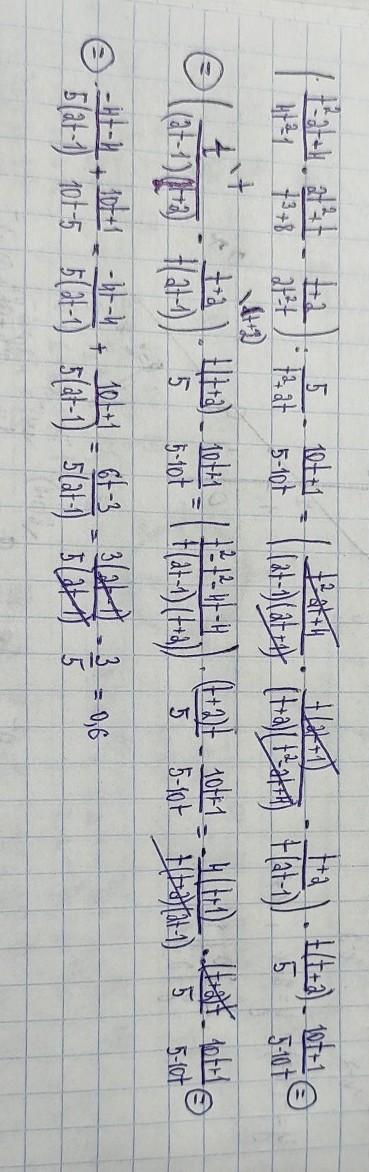 ( (t²-2t+4)/(4t²-1) · (2t²+t)/(t³+8) - (t+2)/(2t²-t) ) : 5/(t²+2t) - (10t+1)/(5-10t) = ( (t²-2t+4)/((2t-1)(2t+1)) · t(2t+1)/((t+2)(t²-2t+4)) - (t+2)/(t(2t-1)) ) · t(t+2)/5 - (10t+1)/(5-10t) =
= ( t\t/((2t-1)(t+2)) - t+2\(t+2)/(t(2t-1)) ) · t(t+2)/5 - (10t+1)/(5-10t) = ( (t²-t²-4t-4)/(t(2t-1)(t+2)) ) · (t+2)t/5 - (10t+1)/(5-10t) = - 4(t+1)/(t(t+2)(2t-1)) · (t+2)t/5 - (10t+1)/(5-10t) =
= (-4t-4)/(5(2t-1)) + (10t+1)/(10t-5) = (-4t-4)/(5(2t-1)) + (10t+1)/(5(2t-1)) = (6t-3)/(5(2t-1)) = 3(2t-1)/(5(2t-1)) = 3/5 = 0,6